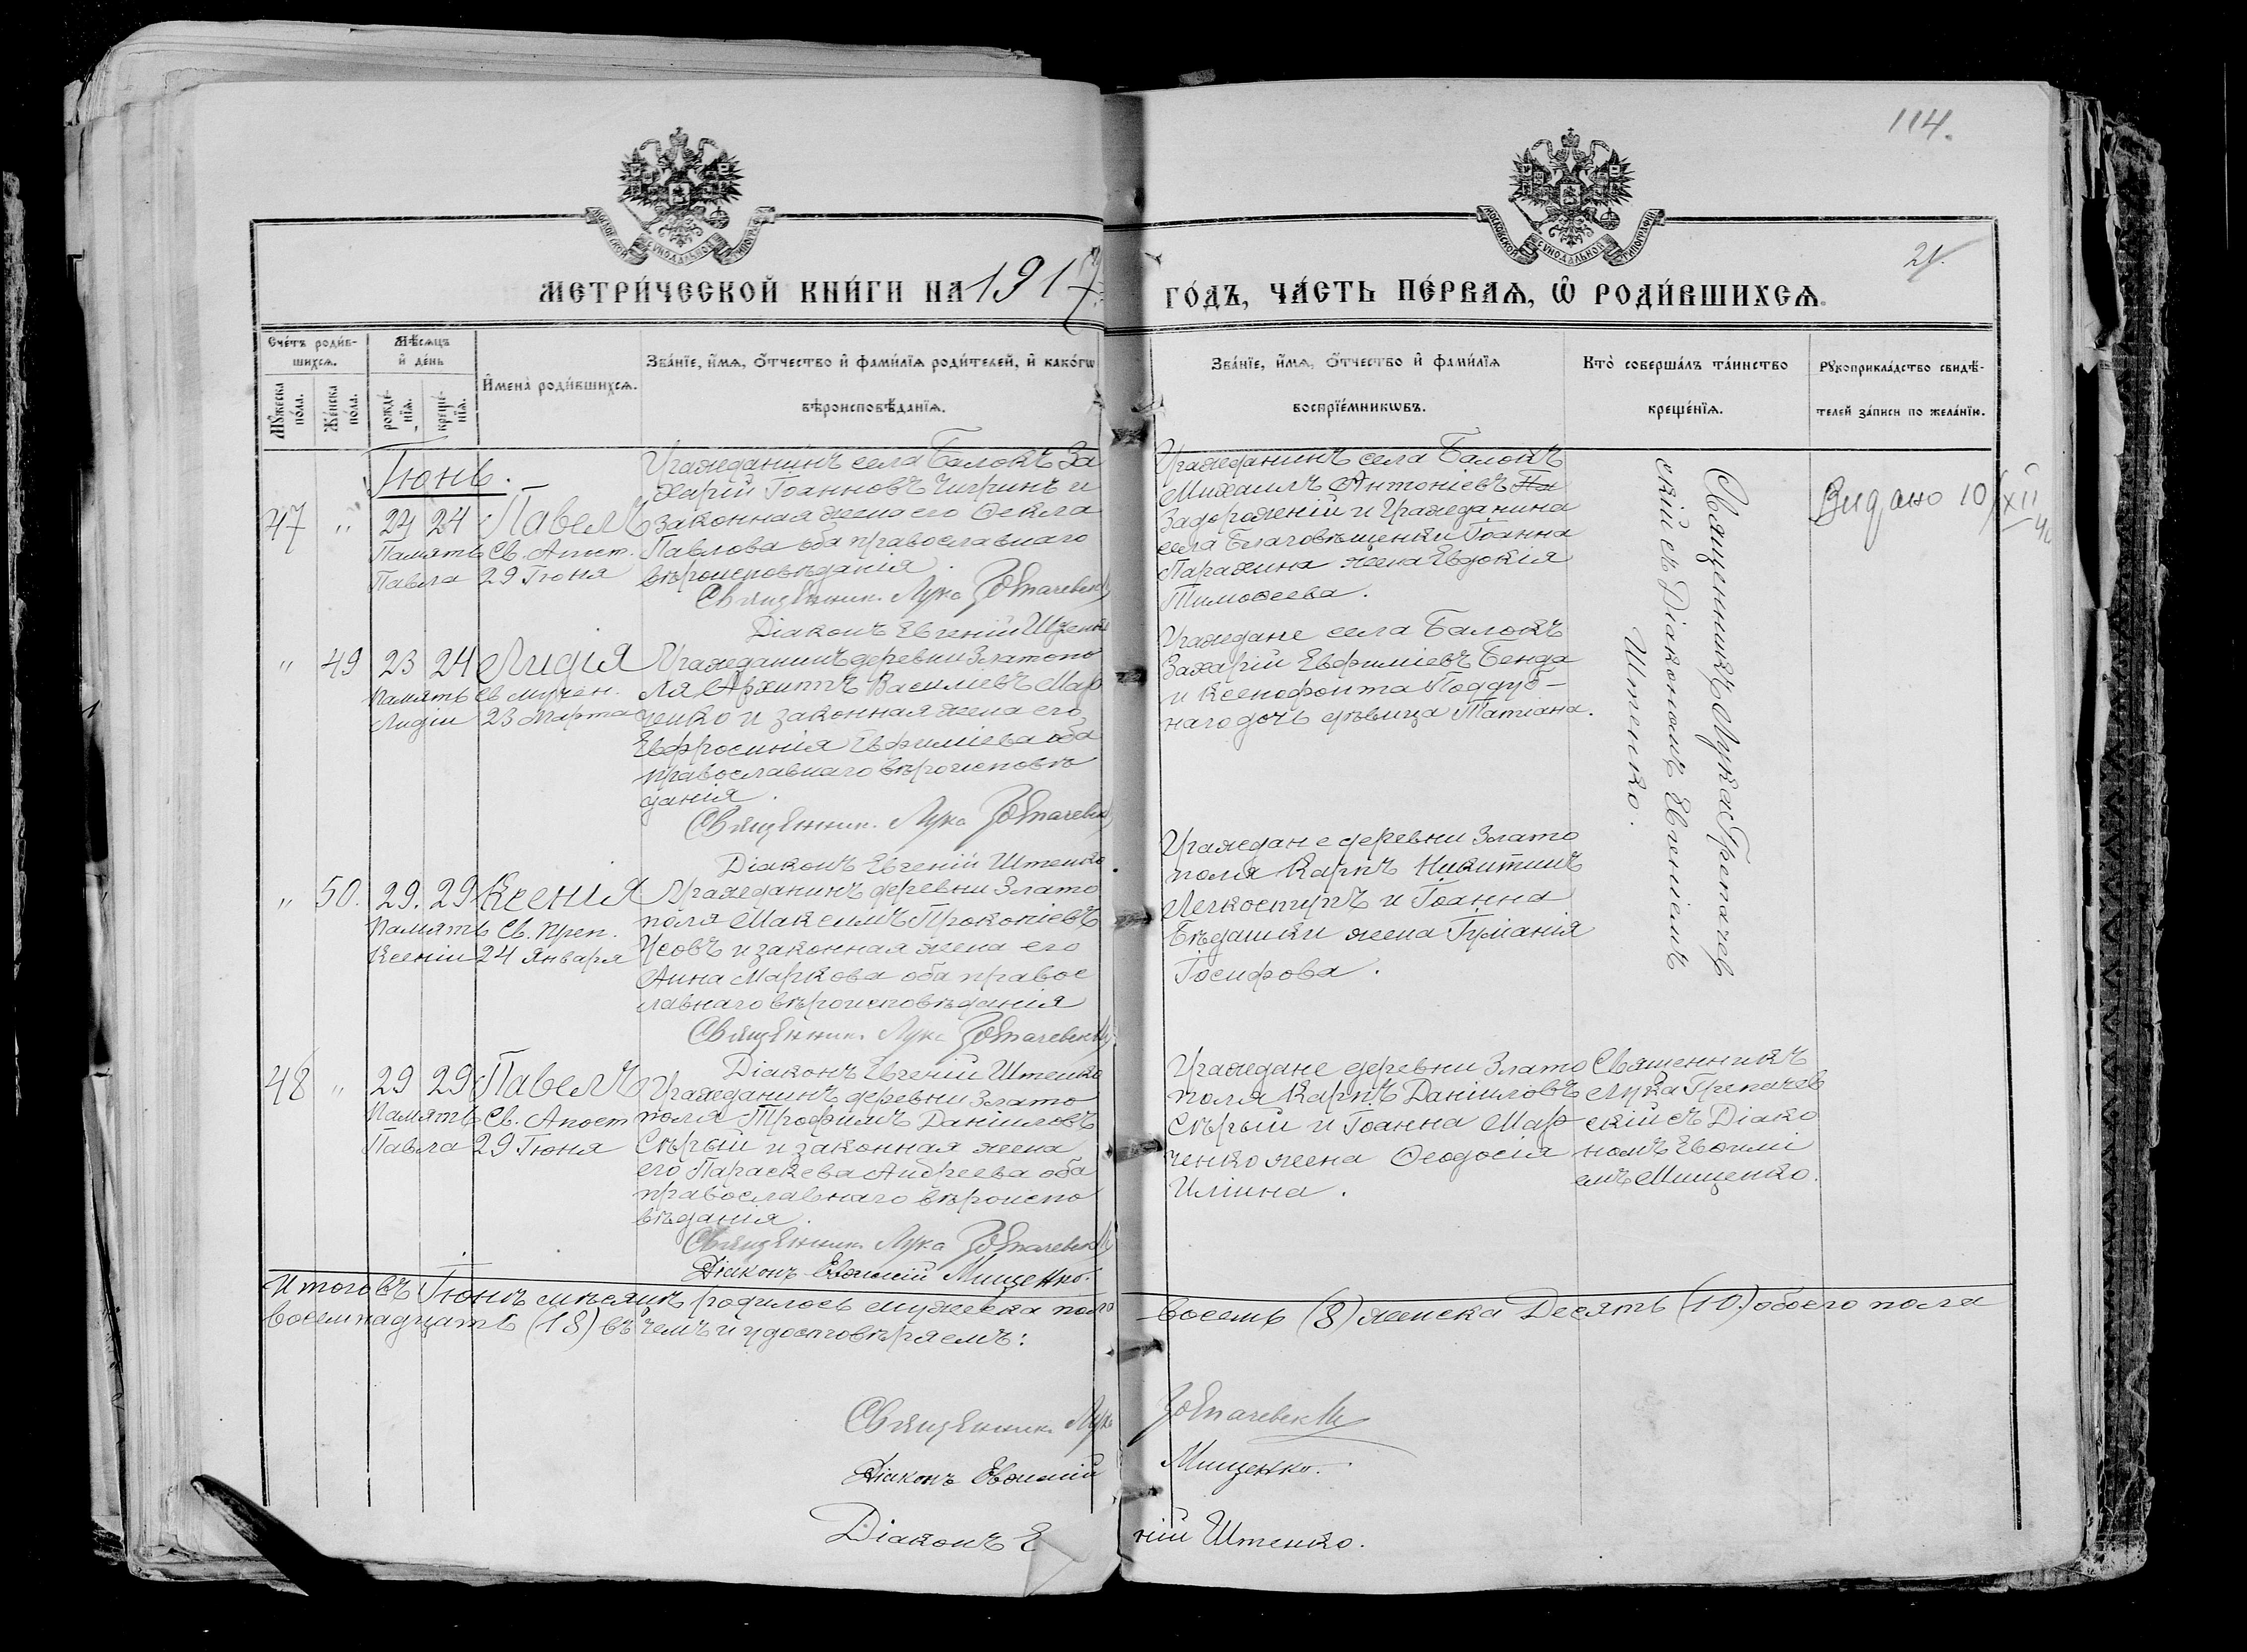 114.
МОСКОВСКОЙ СѴНОДАЛЬНОЙ ТИПОГРАФІИ
МОСКОВСКОЙ СѴНОДАЛЬНОЙ ТИПОГРАФІИ
21.
МЕТРИ́ЧЕСКОЙ КНИ́ГИ НА 1917
ГО́ДЪ, ЧА́СТЬ ПЕ́РВАѦ, Ѡ РОДИ́ВШИХСѦ.
Сче́тъ роди́в-
шихсѧ.
Мꙋ́жеска по́ла.
Же́нска по́ла.
Мѣ́сѧцъ
и҆ де́нь
рожде́-
нїѧ.
креще́-
нїѧ.
И҆мена̀ роди́вшихсѧ.
Зва́нїе, и҆́мѧ, ѻ҆́тчество и҆ фами́лїѧ роди́телей, и҆ како́гѡ
вѣроисповѣ́данїѧ.
Зва́нїе, и҆́мѧ, ѻ҆́тчество и҆ фами́лїѧ
воспрїе́мникѡвъ.
Кто̀ соверша́лъ та́инство
креще́нїѧ.
Рꙋкоприкла́дство свидѣ́-
телей за́писи по жела́нїю.
Іюнь.
47 " 24 24 Павелъ
Память Св. Апост.
Павла 29 Іюня
Гражданинъ села Балокъ За
харій Іоанновъ Чигринъ и
законная жена его Ѳекла
Павлова оба православнаго
вѣроисповѣданія.
Священник. Лука
Діаконъ Евгеній Штенко
Гражданинъ села Балокъ
Михаилъ Антоніевъ
Задорожній и Гражданина
села Благовѣщенки Іоанна
Парахина жена Евдокія
Тимоѳеева.
Священникъ Лука Грепачев
скій съ Діакономъ Евгеніемъ
Штенко.
Видано 10/XII
" 49 23 24 Лидія
Память Св. мучен.
Лидіи 23 Марта
Гражданинъ деревни Златопо
ля Архипъ Василіевъ Мар
ченко и законная жена его
Евфросинія Евфиміева оба
православнаго вѣроисповѣ
данія.
Священник. Лука
Діаконъ Евгеній Штенко.
Граждане села Балокъ
Захарій Евфиміевъ Бенда
и Ксенофонта Поддуб-
наго дочь дѣвица Татіана.
" 50. 29. 29 Ксенія
Память Св. Преп.
Ксеніи 24 Января
Гражданинъ деревни Злато
поля Максимъ Прокопіевъ
Усовъ и законная жена его
Анна Маркова оба правос
лавнаго вѣроисповѣданія
Священник. Лука
Діаконъ Евгеній Штенко
Граждане деревни Злато
поля Карпъ Никитинъ
Легкоступъ и Іоанна
Бѣдашки жена Іуліанія
Іосифова.
48 " 29 29 Павелъ
Память Св. Апост
Павла 29 Іюня
Гражданинъ деревни Злато
поля Трофимъ Даніиловъ
Сѣрый и законная жена
его Параскева Андреева оба
православнаго вѣроиспо
вѣданія.
Священник. Лука
Діаконъ Евѳимій Мищенко.
Граждане деревни Злато
поля Карпъ Даніиловъ
Сѣрый и Іоанна Мар
ченко жена Ѳеодосія
Иліина.
Священникъ
Лука Грепачев
скій съ Діако
номъ Евѳимі
емъ Мищенко.
Итого въ Іюнѣ мѣсяцѣ родилось мужеска пола восемь (8) женска Десять (10) обоего пола
восемнадцать (18) въ чемъ и удостовѣряемъ:
Священник. Лука
Діаконъ Евѳимій Мищенко.
Діаконъ Е ній Штенко.